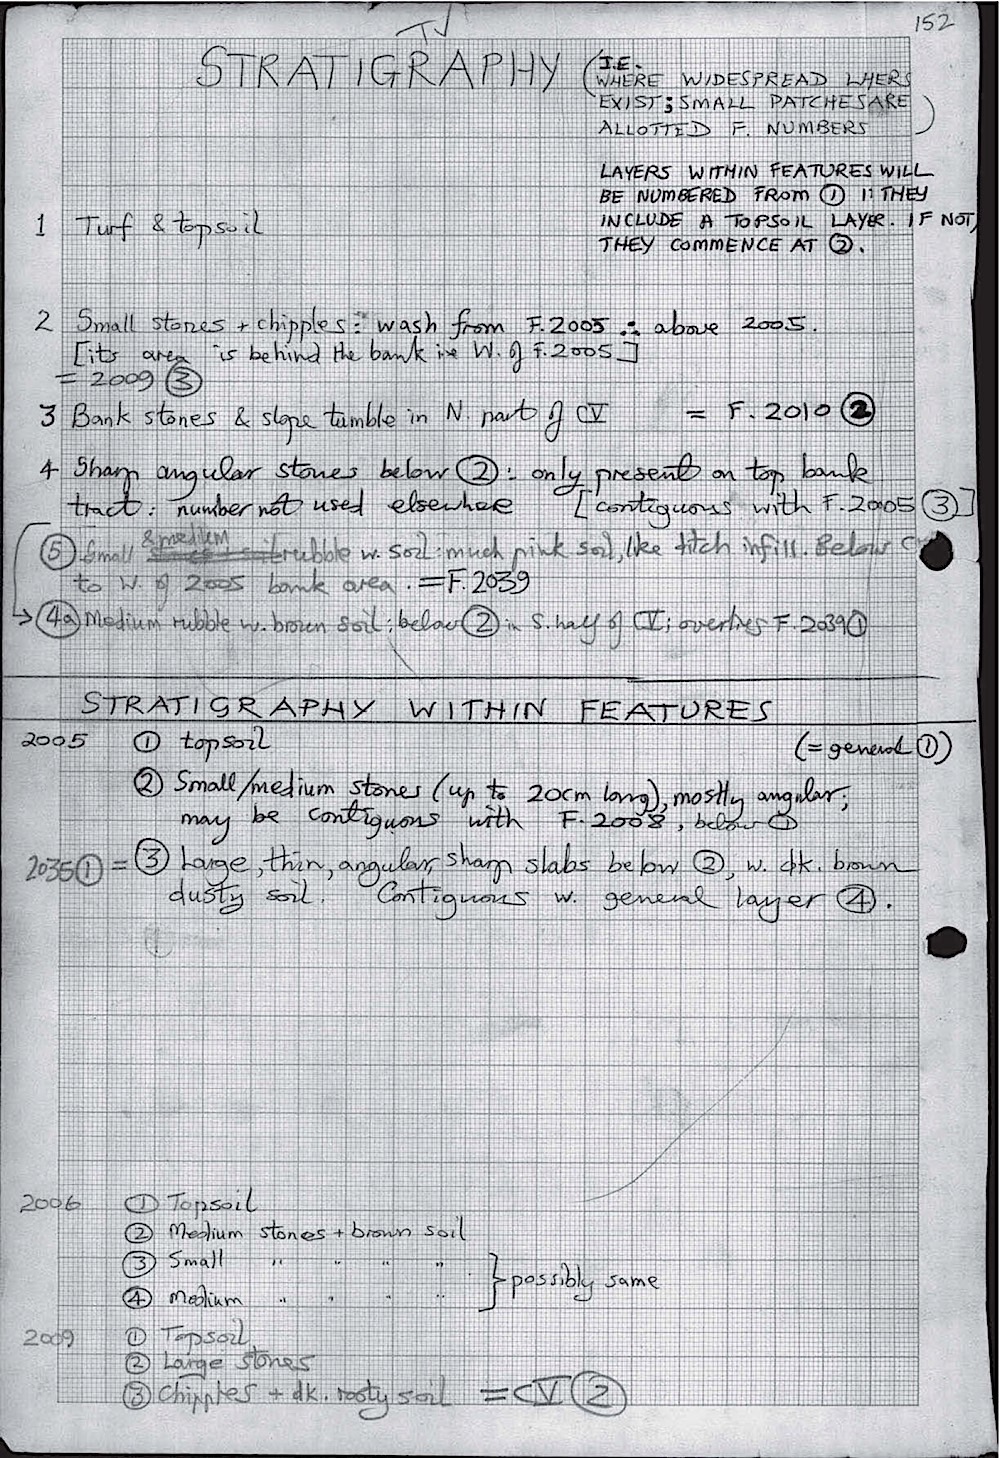 152
STRATIGRAPHY (I.E.
WHERE WIDESPREAD LAYERS
EXIST; SMALL PATCHES ARE
ALLOTTED F. NUMBERS)
LAYERS WITHIN FEATURES WILL
BE NUMBERED FROM ① IF THEY
INCLUDE A TOPSOIL LAYER. IF NOT,
THEY COMMENCE AT ②.
1 Turf & topsoil
2 Small stones + chipples: wash from F.2005 ∴ above 2005.
[its area is behind the bank i.e W. of F.2005]
= 2009 ③
3 Bank stones & slope tumble in N. part of CV = F. 2010 ②
4 Sharp angular stones below ②: only present on top bank
tract: number not used elsewhere [contiguous with F.2005 ③]
⑤ Small & medium rubble w. soil: much pink soil, like ditch infill. Below
to W. of 2005 bank area. = F.2039
→ ④a Medium rubble w. brown soil; below ② in S. half of CV; overlies F.2039①
STRATIGRAPHY WITHIN FEATURES
2005 ① topsoil (= general ①)
② Small/medium stones (up to 20cm long), mostly angular;
may be contiguous with F.2008, below ①
2035① = ③ Large, thin, angular, sharp slabs below ②, w. dk. brown
dusty soil. Contiguous w. general layer ④.
2006 ① Topsoil
② Medium stones + brown soil
③ Small " " " "
④ Medium " " " " } possibly same
2009 ① Topsoil
② Large stones
③ Chipples + dk. rooty soil = CV ②